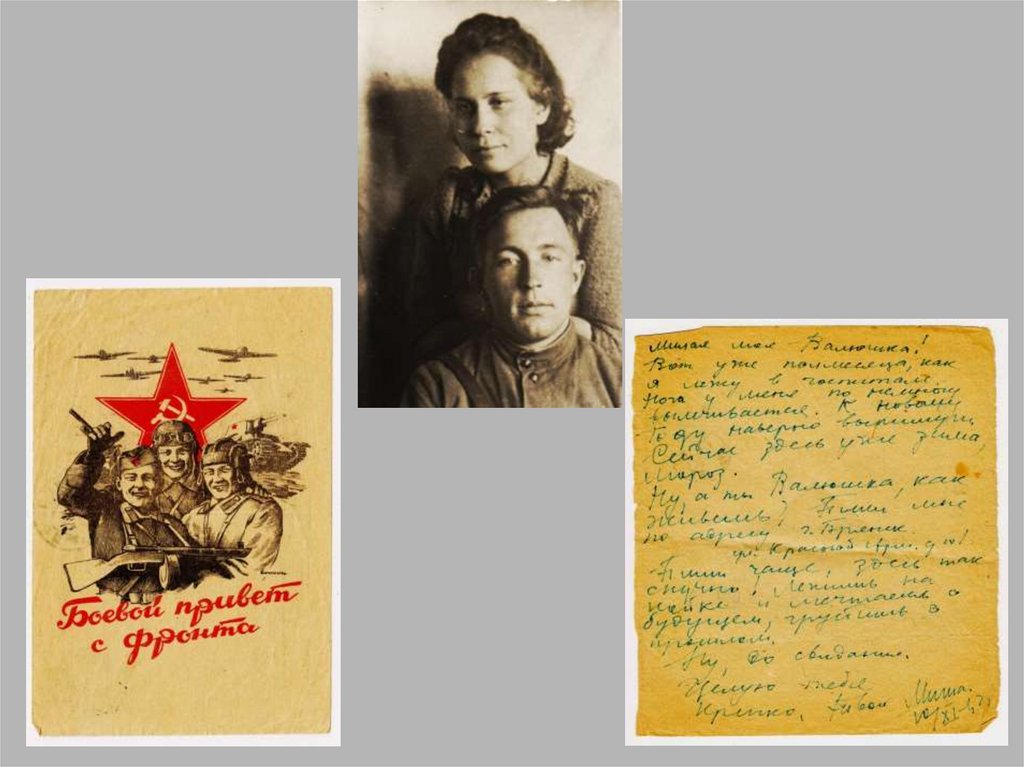 Боевой привет
с фронта
Милая моя Валюшка!
Вот уже полмесяца, как
я лежу в госпитале.
Нога у меня по немногу
вылечивается. К новому
году наверно выпишут.
Сейчас здесь уже зима,
мороз.
Ну, а ты Валюшка, как
живешь? Пиши мне
по адресу г. Брянск
ул. Красной Арм. д 10!
Пиши чаще, здесь так
скучно! Лежишь на
койке и мечтаешь о
будущем, грустишь о
прошлом.
Ну, до свидания.
Целую тебя
Крепко, твой Миша.
10/XI-43